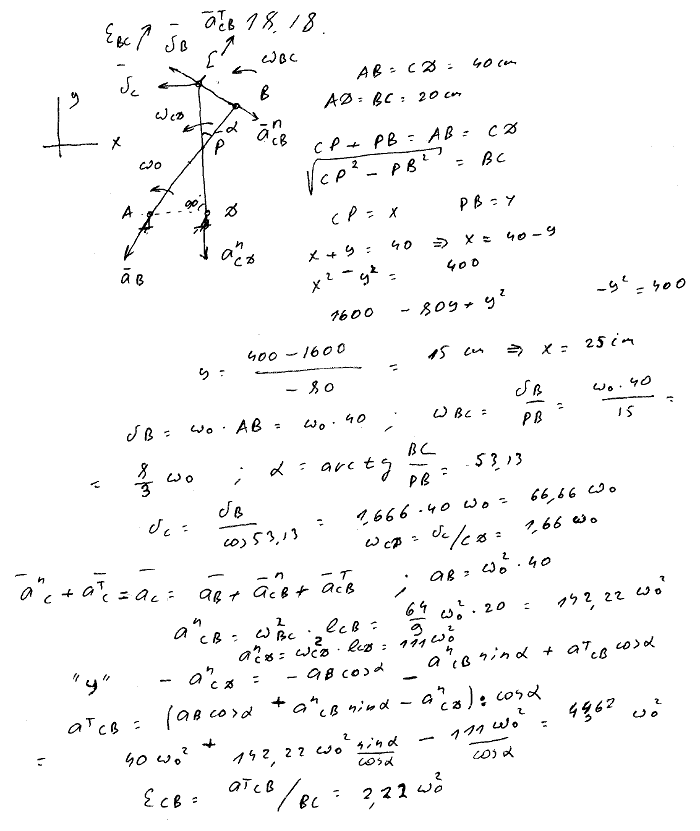 18.18.
ε_BC ν̄_B ā^τ_CB
ν̄_C C ω_BC
y B
x ω_CD α
P ā^n_CB
ω_0
A 90° D
ā_B a^n_CD
AB = CD = 40 cm
AD = BC = 20 cm
CP + PB = AB = CD
√(CP² - PB²) = BC
CP = x PB = y
x + y = 40 ⇒ x = 40 - y
x² - y² = 400
1600 - 80y + y² - y² = 400
y = (400 - 1600)/(-80) = 15 cm ⇒ x = 25 cm
ν_B = ω_0 · AB = ω_0 · 40 ; ω_BC = ν_B/PB = ω_0 · 40/15 =
= 8/3 ω_0 ; α = arctg BC/PB = 53,13
ν_C = ν_B/cos 53,13 = 1,666 · 40 ω_0 = 66,66 ω_0
ω_CD = ν_C/CD = 1,66 ω_0
ā^n_C + ā^τ_C = ā_C = ā_B + ā^n_CB + ā^τ_CB ; a_B = ω_0² · 40
a^n_CB = ω²_BC · l_CB = 64/9 ω_0² · 20 = 142,22 ω_0²
a^n_CD = ω²_CD · l_CD = 111 ω_0²
"y" - a^n_CD = - a_B cos α - a^n_CB sin α + a^τ_CB cos α
a^τ_CB = (a_B cos α + a^n_CB sin α - a^n_CD) : cos α
= 40 ω_0² + 142,22 ω_0² sin α/cos α - 111 ω_0²/cos α = ω_0²
ε_CB = a^τ_CB/BC = 2,22 ω_0²